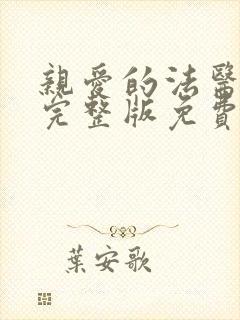 親愛的法醫
完整版免費
葉安歌